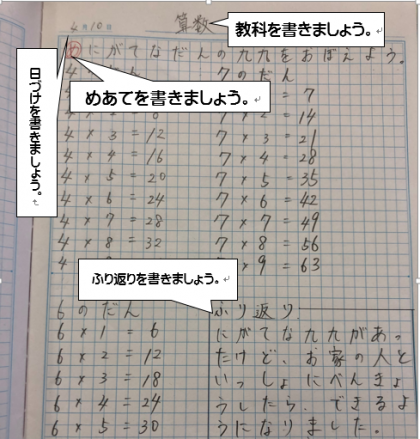 4月10日
算数
教科を書きましょう。
めにがてなだんの九九をおぼえよう。
日づけを書きましょう。
めあてを書きましょう。
7のだん
= 7
= 14
4 × 3 = 12
7 × 3 = 21
4 × 4 = 16
7 × 4 = 28
4 × 5 = 20
7 × 5 = 35
4 × 6 = 24
7 × 6 = 42
4 × 7 = 28
7 × 7 = 49
4 × 8 = 32
7 × 8 = 56
7 × 9 = 63
ふり返りを書きましょう。
6のだん
6 × 1 = 6
6 × 2 = 12
6 × 3 = 18
6 × 4 = 24
6 × 5 = 30
ふり返り
にがてな九九があっ
たけど、お家の人と
いっしょにべんきょ
うしたら、できるよ
うになりました。